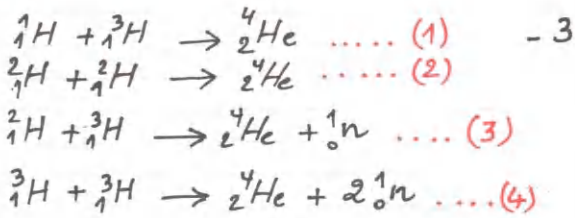 ¹₁H + ³₁H → ⁴₂He ..... (1) - 3
²₁H + ²₁H → ⁴₂He ..... (2)
²₁H + ³₁H → ⁴₂He + ¹₀n .... (3)
³₁H + ³₁H → ⁴₂He + 2 ¹₀n ....(4)